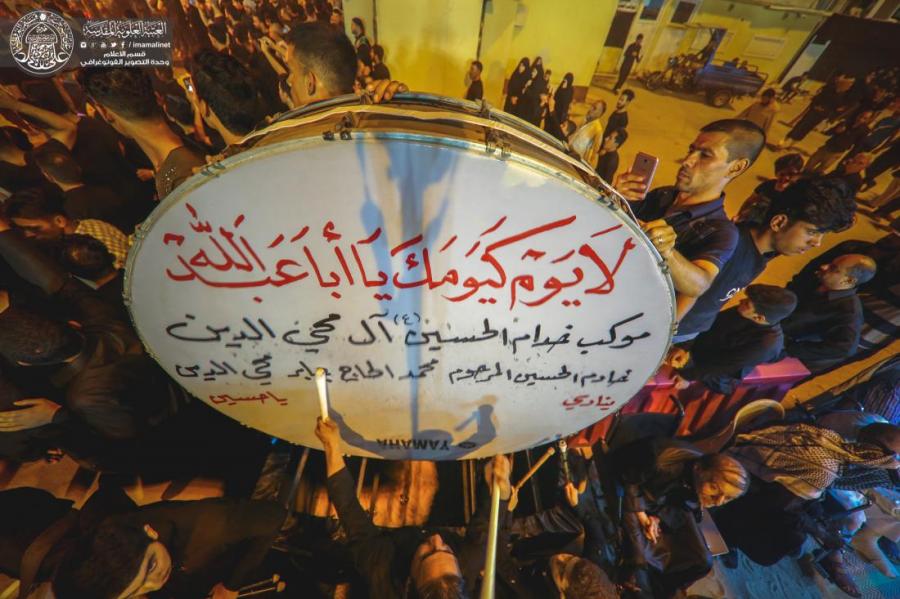 العتبة العلوية المقدسة
/ imamalinet
قسم الاعلام
وحدة التصوير الفوتوغرافي
لَا يَوْمَ كَيَومَكَ يَا أبَا عَبدِ اللَّه
موكب خدام الحسين (ع) آل محي الدين
خادم الحسين المرحوم محمد الحاج جابر محي الدين
ينادي ياحسين
YAMAHA